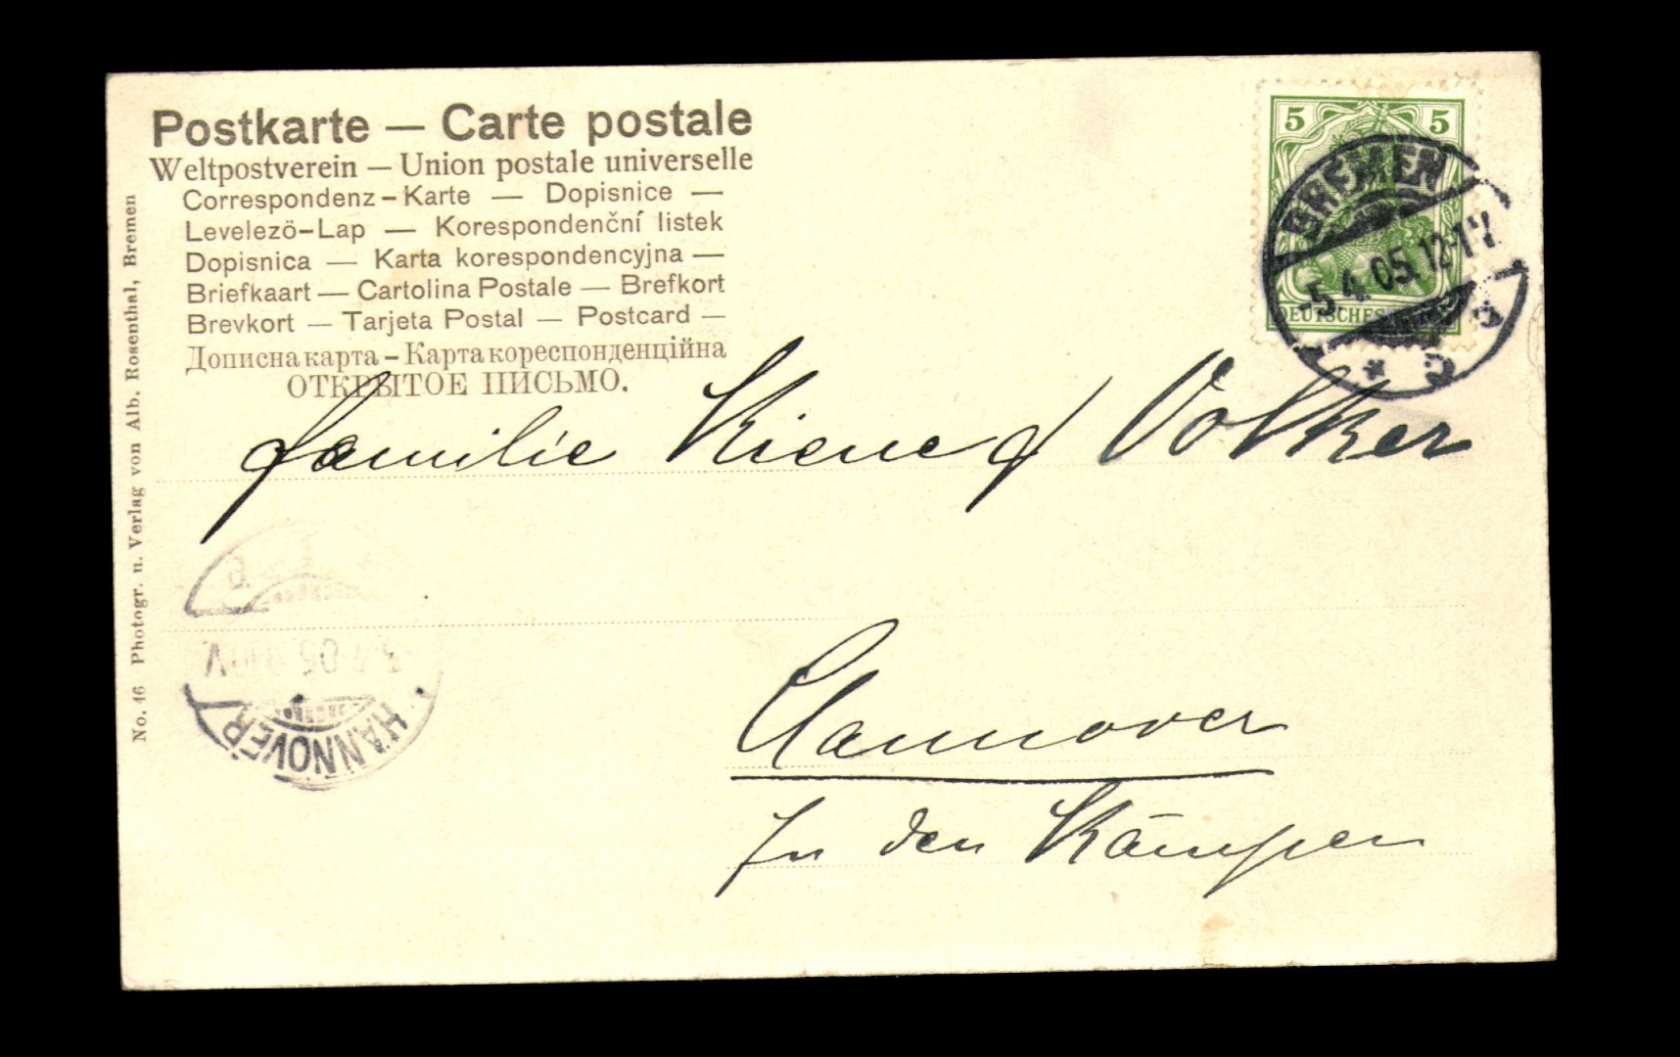 Postkarte — Carte postale
Weltpostverein — Union postale universelle
Correspondenz-Karte — Dopisnice —
Levelezö-Lap — Korespondenční listek
Dopisnica — Karta korespondencyjna —
Briefkaart — Cartolina Postale — Brefkort
Brevkort — Tarjeta Postal — Postcard —
Дописна карта – Карта кореспонденційна
ОТКРЫТОЕ ПИСЬМО.
No. 46 Photogr. u. Verlag von Alb. Rosenthal, Bremen
5 5
DEUTSCHES
BREMEN
-5.4.05.12-1V.
Familie Kiene Volker
HANNOVER
Hannover
In den Kämpen